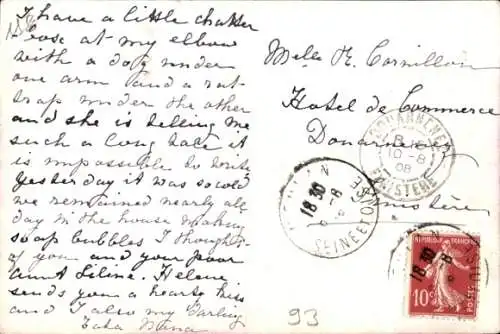 I have a little chatter
box at my elbow
with a dog under
one arm and a rat
trap under the other
and she is telling me
such a long tale it
is impossible to write
yesterday it was so cold
we remained nearly all
day in the house making
soap bubbles I thought
of you and your poor
Aunt Liline. Helene
sends you a hearty kiss
and I also my darling
Nana
Melle E. Cornillon
Hotel de Commerce
Douarnenez
Finistère
DOUARNENEZ
10-8
08
FINISTERE
18 30
8
SEINE ET OISE
18 30
8
10c
POSTES
93